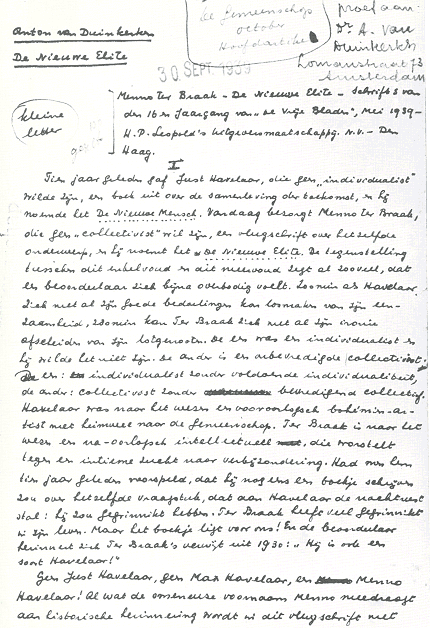 de Gemeenschap
october
Hoofdartikel
proef aan:
Dr A. van
Duinkerken
Lomanstraat 73
Amsterdam
Anton van Duinkerken
De Nieuwe Elite
30 SEPT. 1939
kleine
letter
Menno Ter Braak – De Nieuwe Elite – Schrift 5 van
den 16en Jaargang van "De Vrije Bladen", Mei 1939 –
H.P. Leopold's Uitgeversmaatschappij N.V. – Den
Haag.
I
Tien jaar geleden gaf Just Havelaar, die geen "individualist"
wilde zijn, een boek uit over de samenleving der toekomst, en hij
noemde het De Nieuwe Mensch. Vandaag bezorgt Menno Ter Braak,
die geen "collectivist" wil zijn, een vlugschrift over hetzelfde
onderwerp, en hij noemt het De Nieuwe Elite. De tegenstelling
tusschen dit enkelvoud en dit meervoud zegt al zooveel, dat
een beoordeelaar zich bijna overbodig voelt. Zoomin als Havelaar
zich met al zijn goede bedoelingen kon losmaken van zijn een-
zaamheid, zoomin kan Ter Braak zich met al zijn ironie
afscheiden van zijn lotgenooten. De een was een individualist en
hij wilde het niet zijn. De ander is een onbevredigde collectivist.
De een: individualist zonder voldoende individualiteit,
de ander: collectivist zonder bevredigend collectief.
Havelaar was naar het wezen een vooroorlogsch bohémien-ar-
tist met heimwee naar de gemeenschap. Ter Braak is naar het
wezen een na-oorlogsch intellectueel, die worstelt
tegen een intieme zucht naar verbijzondering. Had men hem
tien jaar geleden voorspeld, dat hij nog eens een boekje schrijven
zou over hetzelfde vraagstuk, dat aan Havelaar de nachtrust
stal: hij zou gegrinnikt hebben. Ter Braak heeft veel gegrinnikt
in zijn leven. Maar het boekje ligt voor ons! En de beoordeelaar
herinnert zich Ter Braak's verwijt uit 1930: "Hij is ook een
soort Havelaar!"
Geen Just Havelaar, geen Max Havelaar, een Menno
Havelaar! Al wat de voornaam Menno meedraagt
aan historische herinnering wordt in dit vlugschrift met